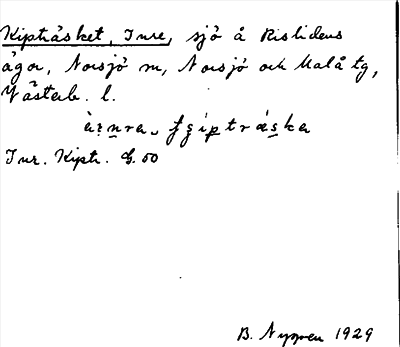 Kipträsket, Inre, sjö å Rislidens
ägor, Norsjö sn, Norsjö och Malå tg,
Västerb. l.
Inr. Kiptr. G.60
B. Nygren 1929